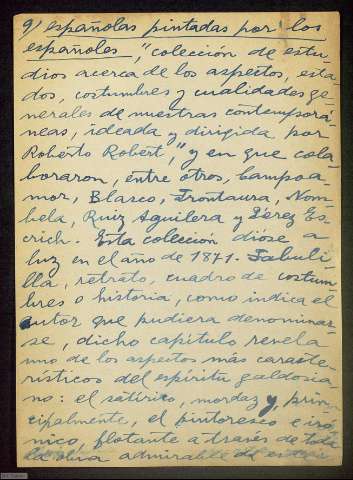 9) españolas pintadas por los
españoles, "colección de estu-
dios acerca de los aspectos, esta-
dos, costumbres y cualidades ge-
nerales de nuestras contemporá-
neas, ideada y dirigida por
Roberto Robert," y en que cola-
boraron, entre otros, Campoa-
mor, Blasco, Frontaura, Nom-
bela, Ruiz Aguilera y Pérez Es-
crich. Esta colección dióse a
luz en el año de 1871. Fabuli-
lla, retrato, cuadro de costum-
bres o historia, como indica el
autor que pudiera denominar-
se, dicho capítulo revela
uno de los aspectos más caracte-
rísticos del espíritu galdosia-
no: el satírico, mordaz y, prin-
cipalmente, el pintoresco e iró-
nico, flotante a través de toda
la obra admirable del